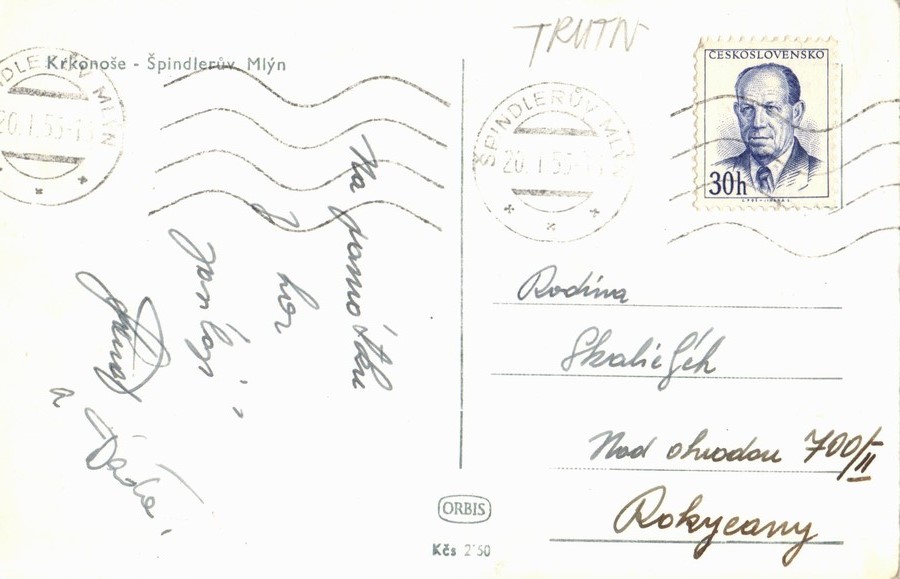 Krkonoše - Špindlerův Mlýn
ŠPINDLERŮV MLÝN
20.I.55-1
Na památku
z hor
a Dáda.
TRUTN
ŠPINDLERŮV MLÝN
20.I.55-1
ČESKOSLOVENSKO
30h
Rodina
Skalických
Nad ohradou 700/II
Rokycany
ORBIS
Kčs 2'50